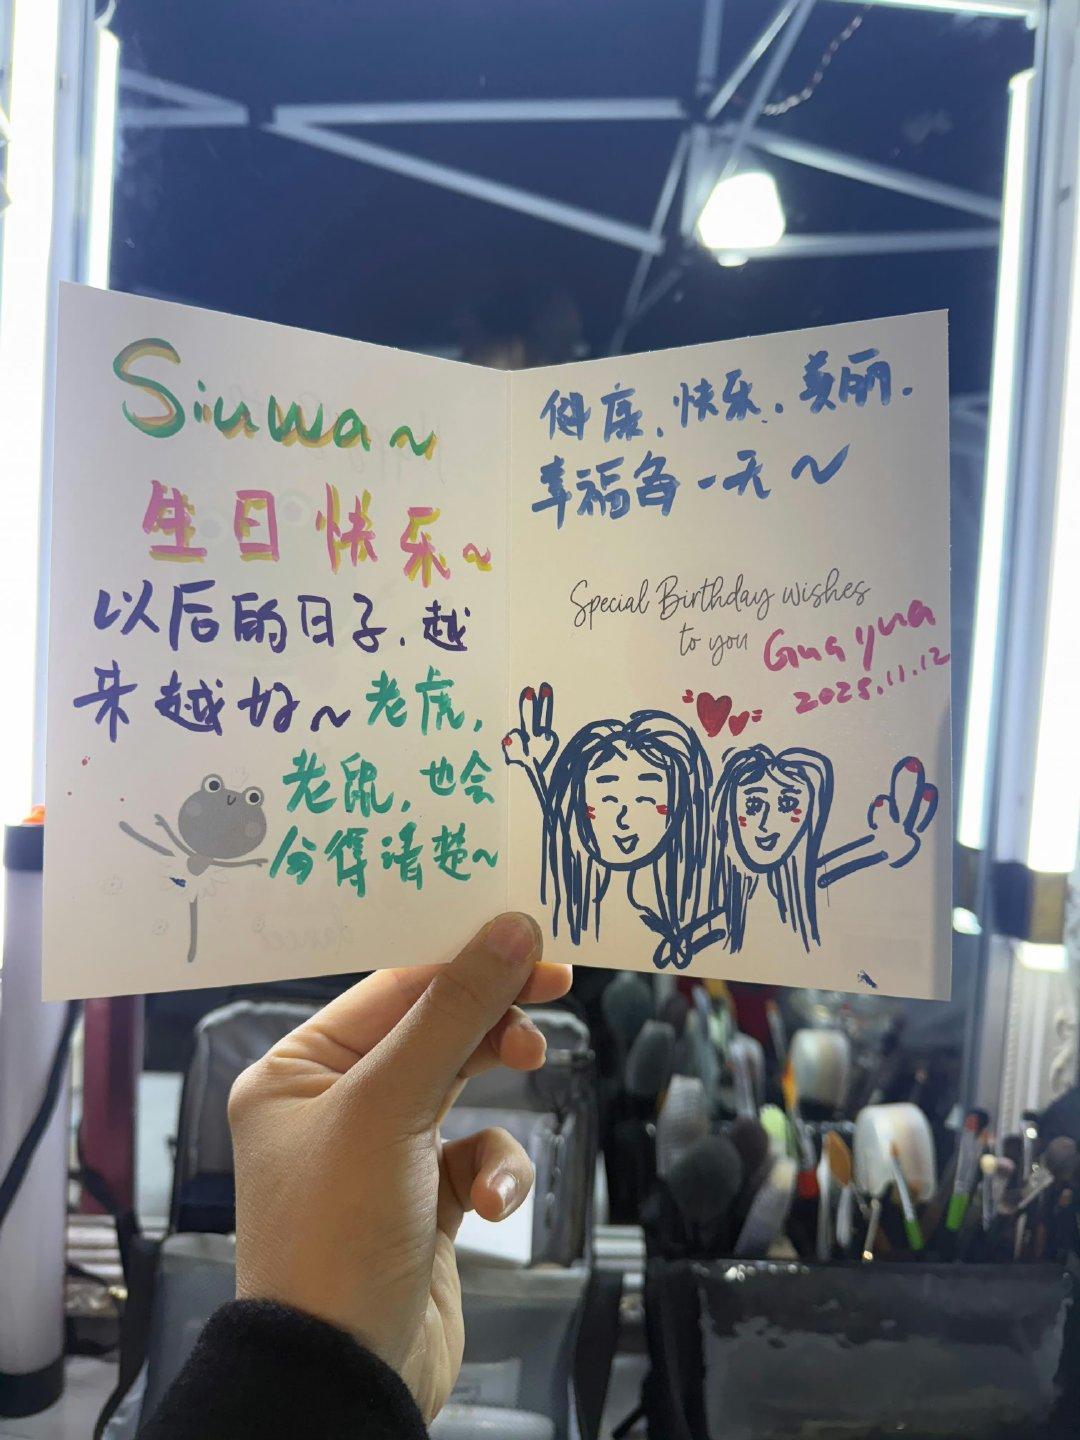 Siuwa~
生日快乐~
以后的日子,越
来越好~老虎,
老鼠,也会
分得清楚~
健康、快乐、美丽.
幸福每一天~
Special Birthday wishes
to you
Guayua
2025.11.12